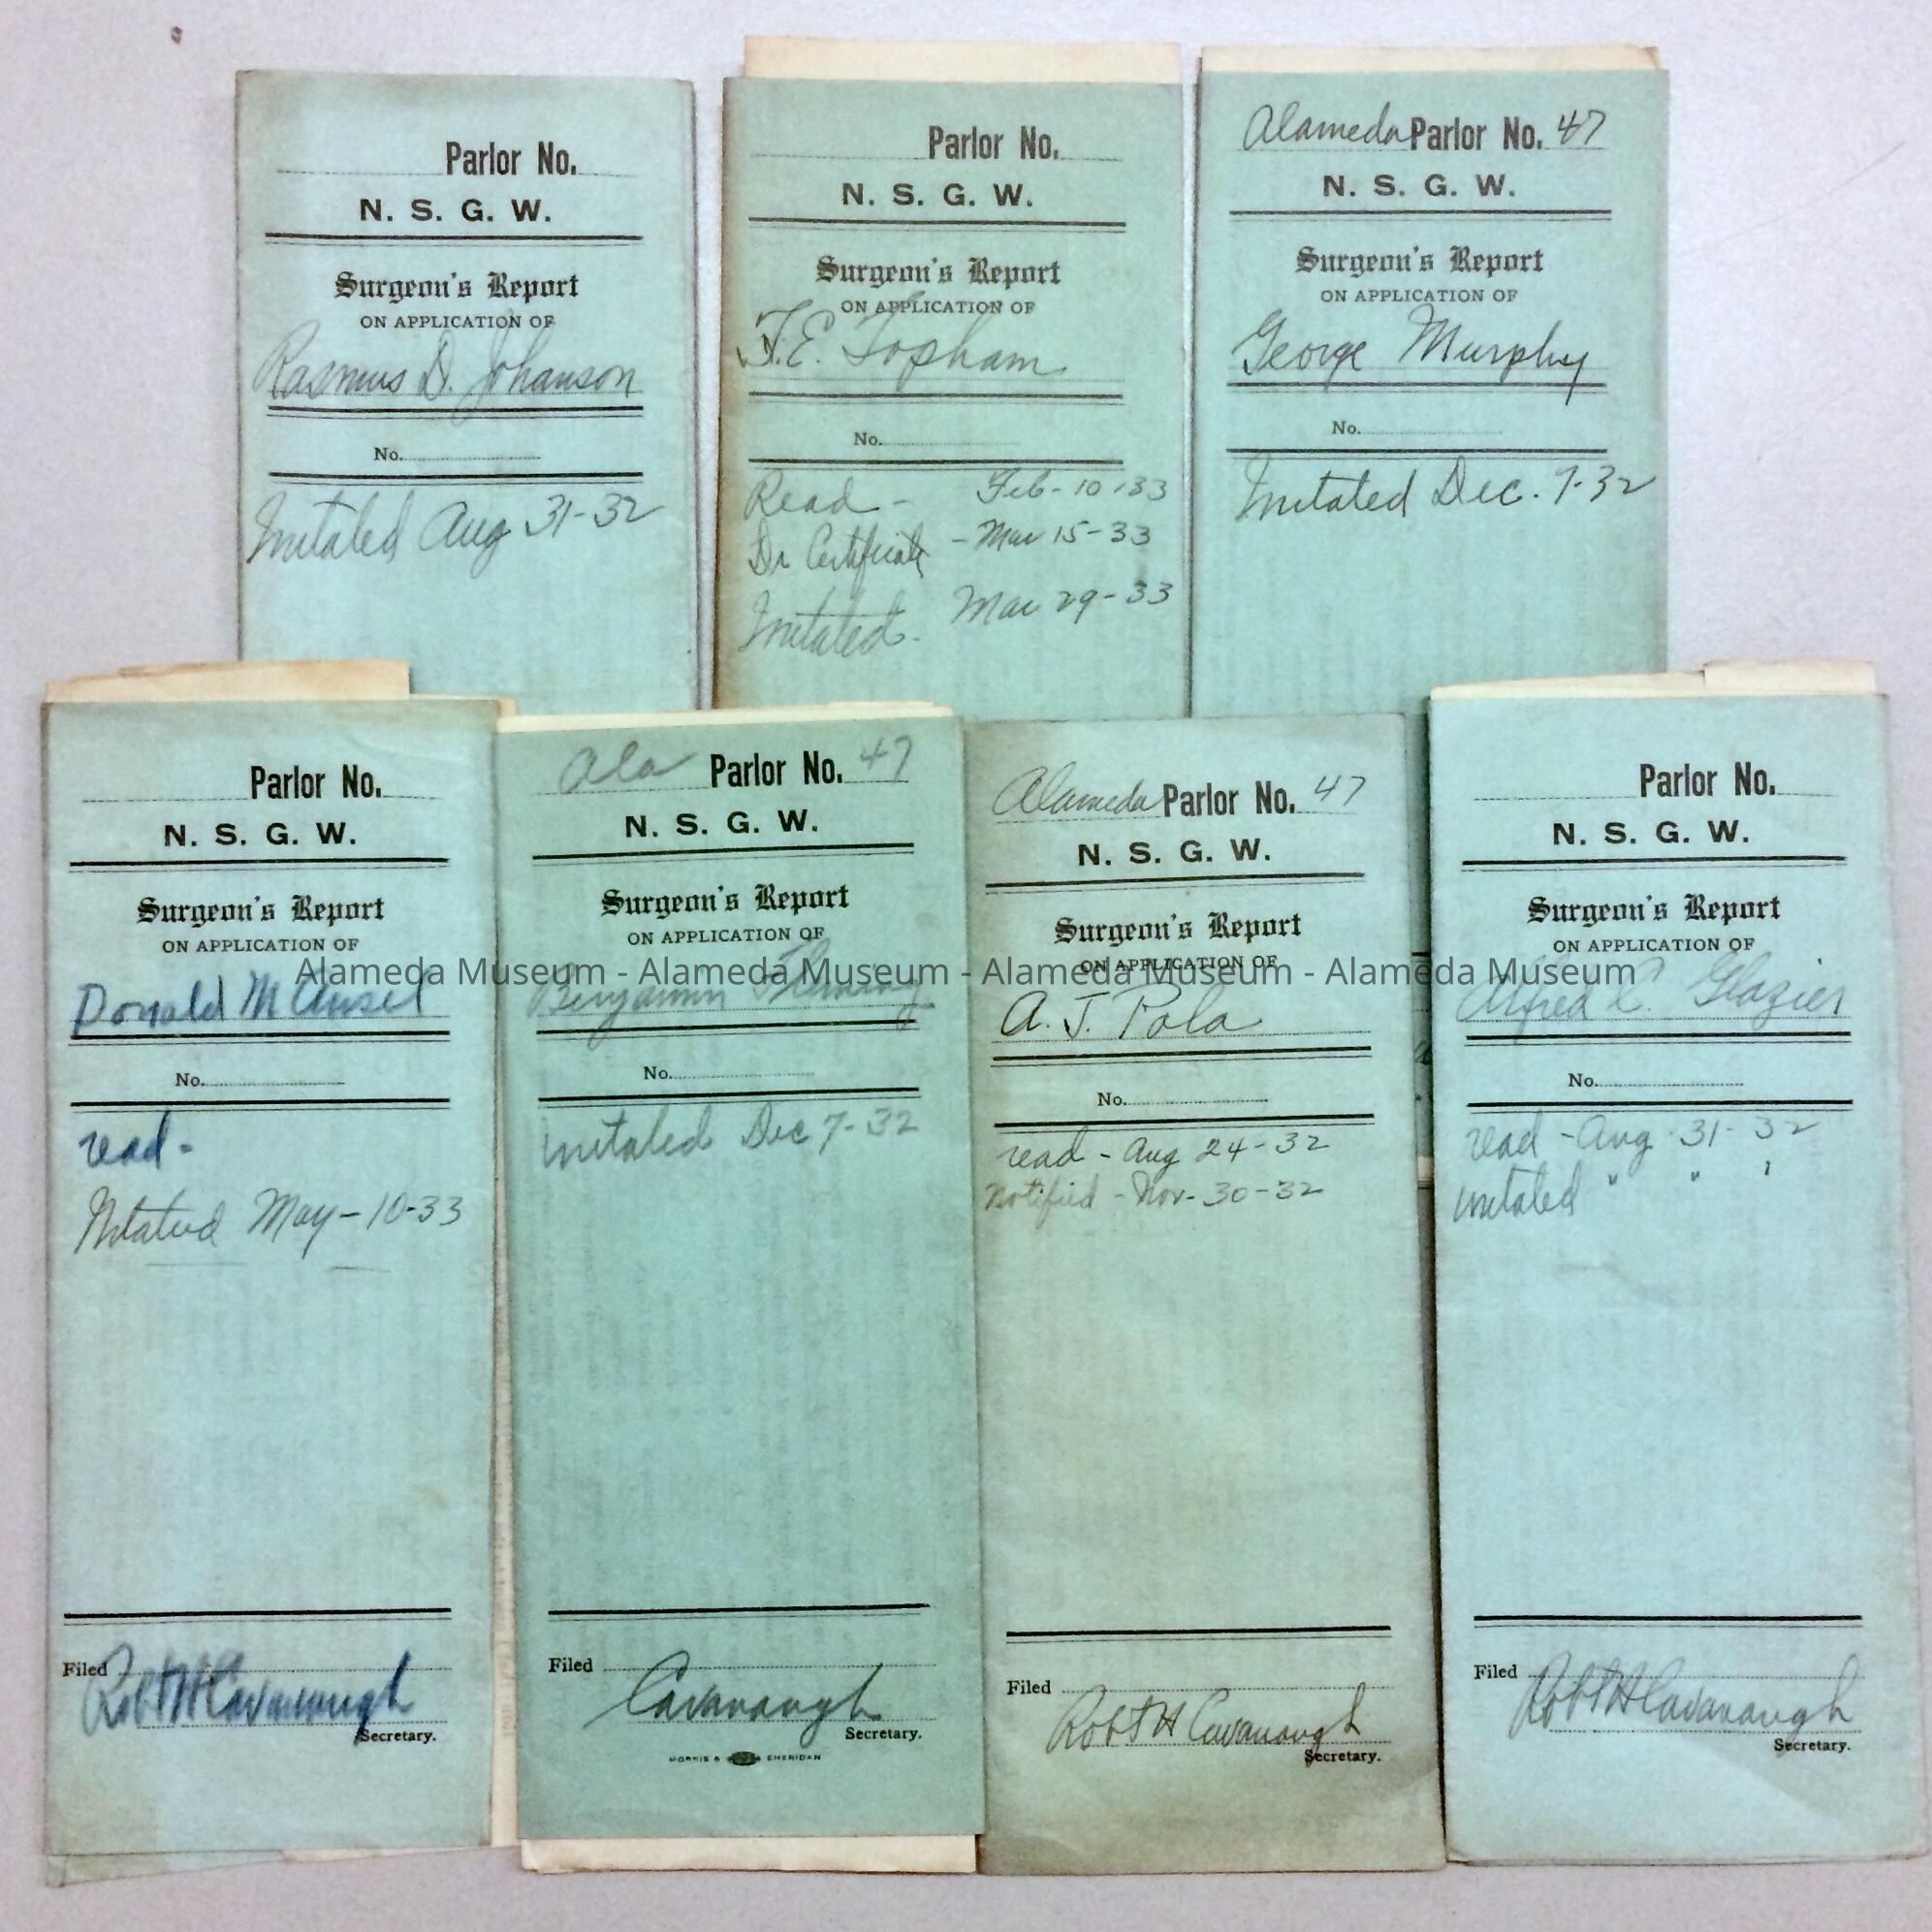 Parlor No.
N. S. G. W.
Surgeon's Report
ON APPLICATION OF
Rasmus D. Johanson
No.
Initated Aug 31-32
Parlor No.
N. S. G. W.
Surgeon's Report
ON APPLICATION OF
F.E. Topham
No.
Read - Feb-10-33
Dr Certificate - Mar 15-33
Initated. Mar 29-33
Alameda Parlor No. 47
N. S. G. W.
Surgeon's Report
ON APPLICATION OF
George Murphy
No.
Initated Dec. 7-32
Parlor No.
N. S. G. W.
Surgeon's Report
ON APPLICATION OF
Donald M Ansel
No.
read-
May-10-33
Filed
Robt H Cavanaugh
Secretary.
Ala Parlor No. 47
N. S. G. W.
Surgeon's Report
ON APPLICATION OF
Benjamin Fleming
No.
initated Dec 7-32
Filed
Cavanaugh
Secretary.
MORRIS & SHERIDAN
Alameda Parlor No. 47
N. S. G. W.
Surgeon's Report
ON APPLICATION OF
A. J. Pola
No.
read - Aug 24-32
Notified - Nov-30-32
Filed
Robt H Cavanaugh
Secretary.
Parlor No.
N. S. G. W.
Surgeon's Report
ON APPLICATION OF
Alfred C. Glazier
No.
read - Aug 31-32
initated " " "
Filed
Robt H Cavanaugh
Secretary.
Alameda Museum - Alameda Museum - Alameda Museum - Alameda Museum